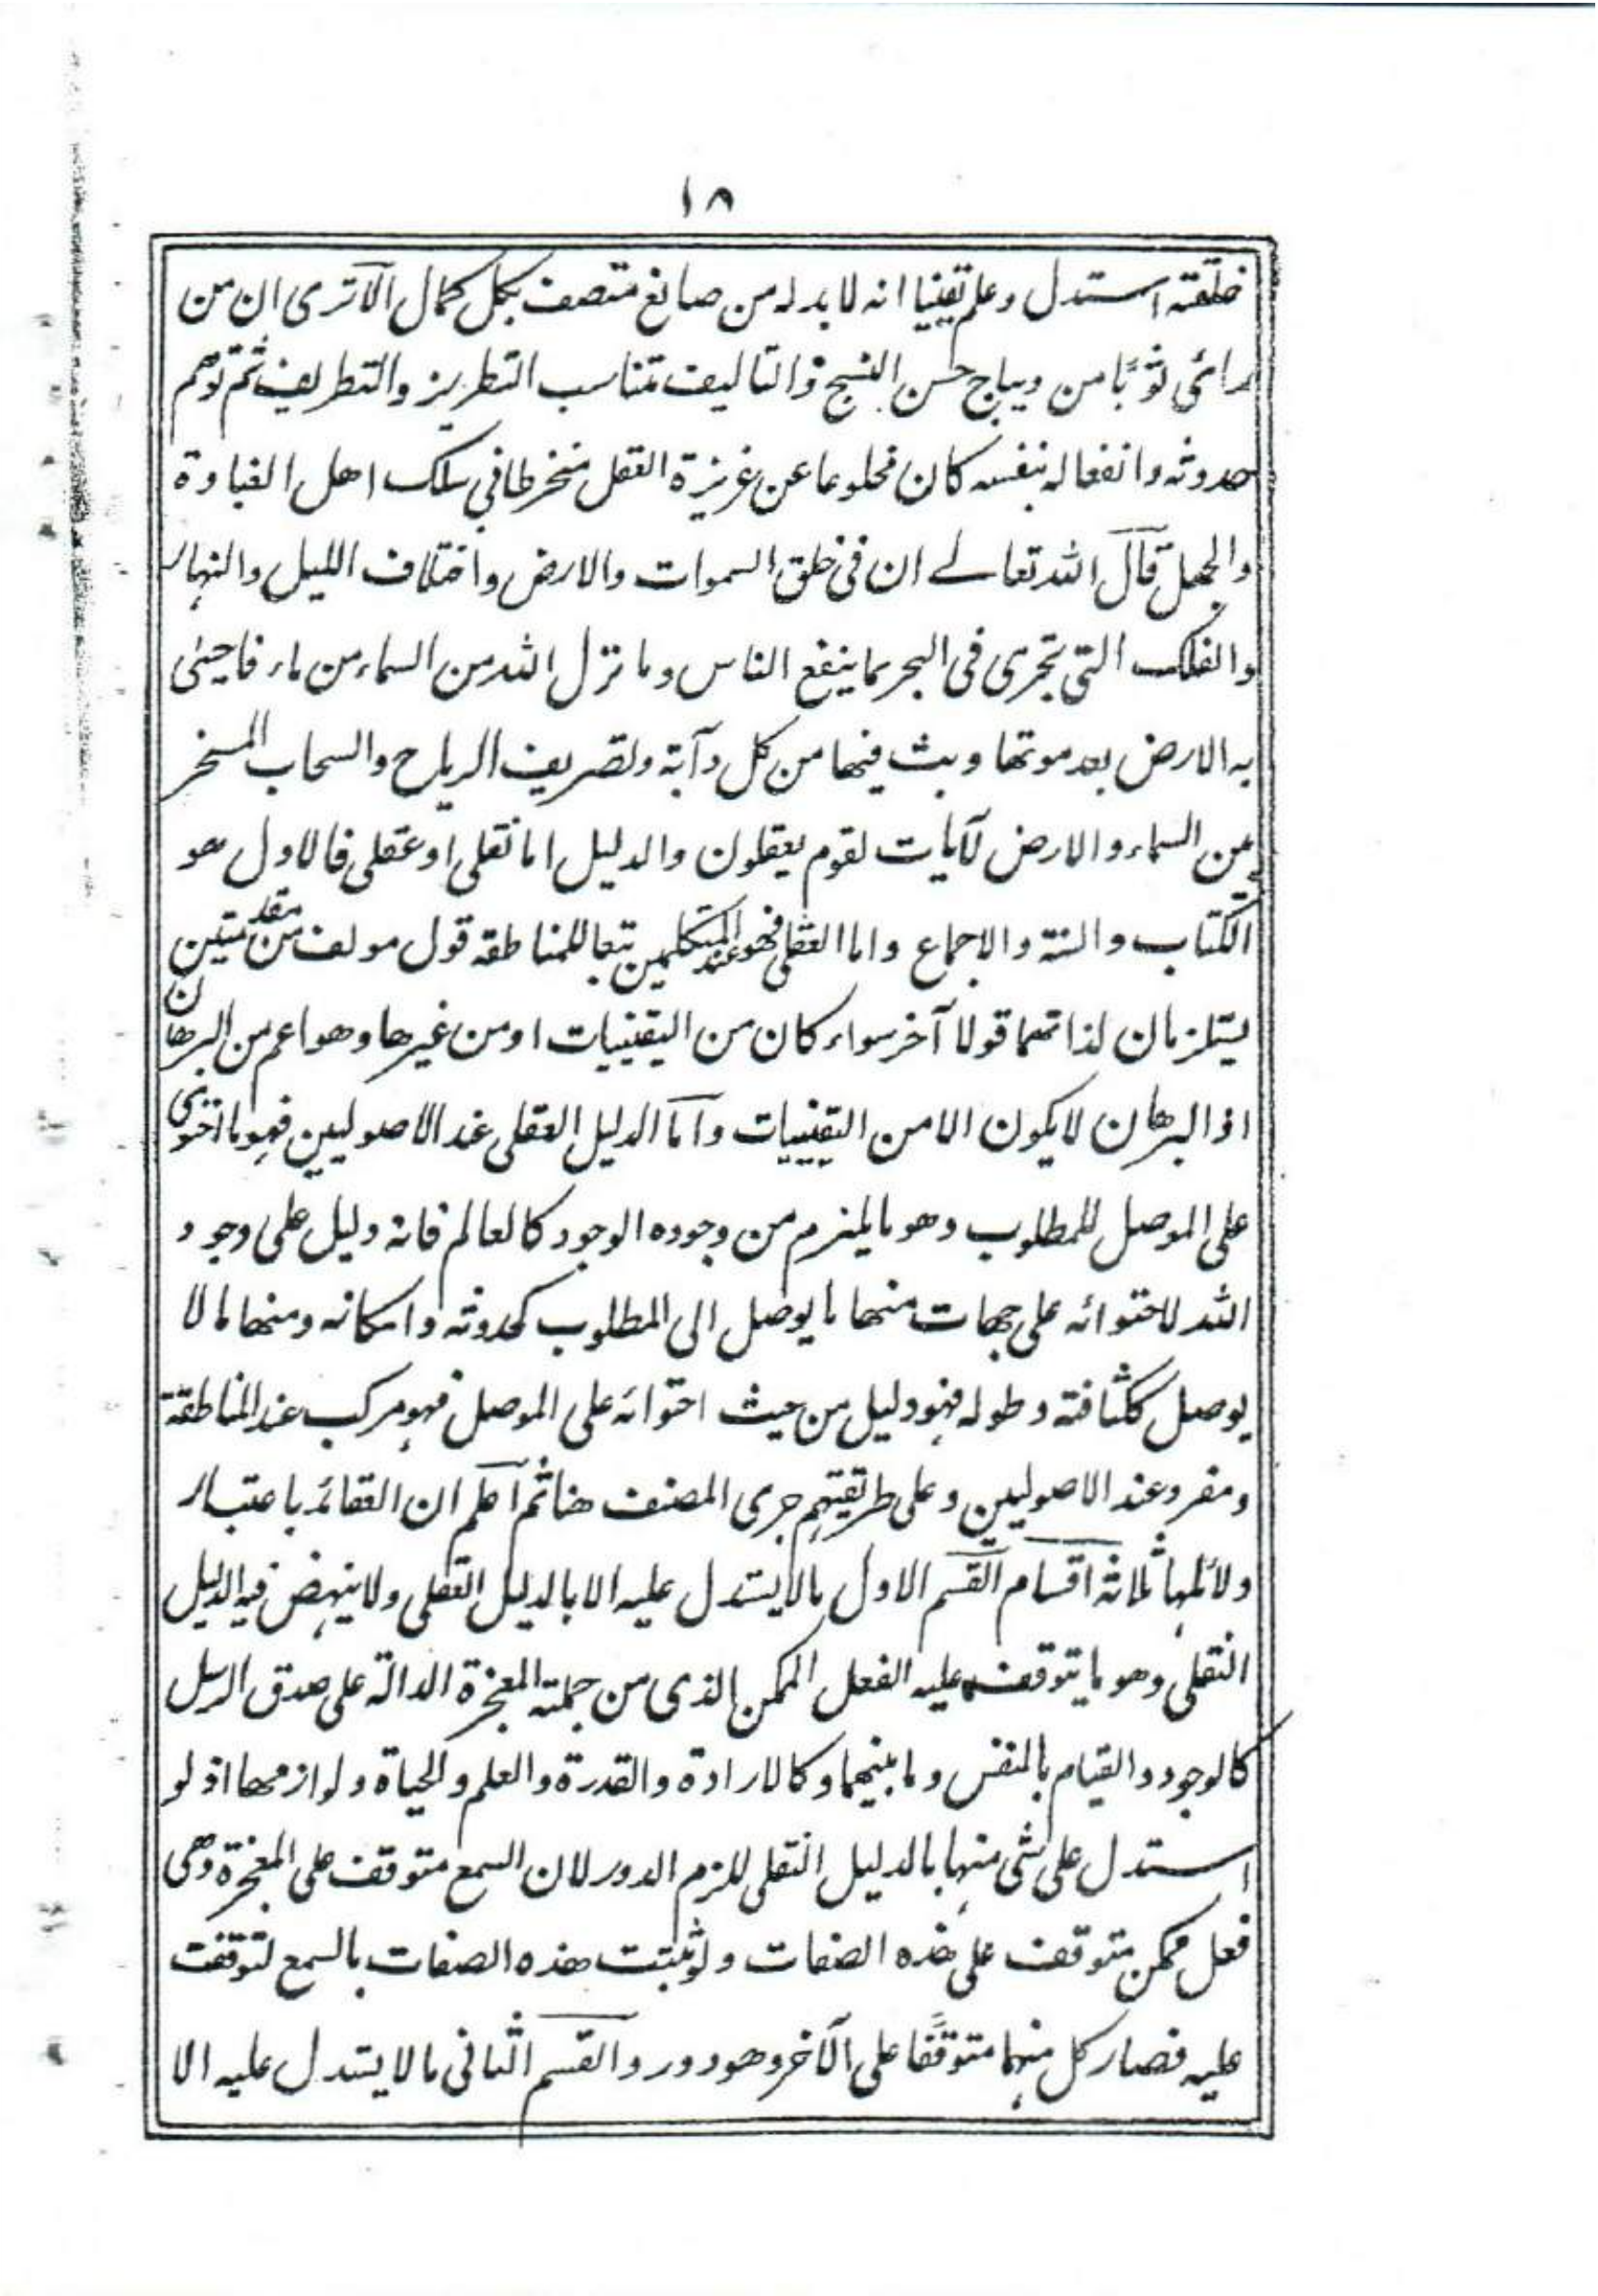 ١٨
خلقته استدل وعلم يقينيا انه لا بد له من صانع متصف بكل كمال الا ترى ان من
رائى ثوبًا من ديباج حسن النسج والتاليف متناسب التطريز والتطريف ثم توهم
حدوثه وانفعاله بنفسه كان مخلوعا عن غريزة العقل منخرطا في سلك اهل الغباوة
والجهل قال الله تعالے ان فى خلق السموات والارض واختلاف الليل والنهار
والفلك التى تجرى فى البحر بما ينفع الناس وما نزل الله من السماء من ماء فاحيى
به الارض بعد موتها وبث فيها من كل دآبة وتصريف الرياح والسحاب المسخر
بين السماء والارض لآيات لقوم يعقلون والدليل اما نقلى او عقلى فالاول هو
الكتاب والسنة والاجماع واما العقلى فهو عند المتكلمين تبعا للمناطقة قول مولف من مقدمتين
يستلزمان لذاتهما قولا آخر سواء كان من اليقينيات او من غيرها وهو اعم من البرهان
اذ البرهان لا يكون الا من اليقينيات واما الدليل العقلى عند الاصوليين فهو ما احتوى
على الموصل للمطلوب وهو ما يلزم من وجوده الوجود كالعالم فانه دليل على وجود
الله لاحتوائه على جهات منها ما يوصل الى المطلوب كحدوثه وامكانه ومنها ما لا
يوصل ككثافته وطوله فهو دليل من حيث احتوائه على الموصل فهو مركب عند المناطقة
ومفرد عند الاصوليين وعلى طريقتهم جرى المصنف هنا ثم اعلم ان العقائد باعتبار
دلائلها ثلاثة اقسام القسم الاول ما لا يستدل عليه الا بالدليل العقلى ولا ينهض فيه الدليل
النقلى وهو ما يتوقف عليه الفعل الممكن الذى من جملته المعجزة الدالة على صدق الرسل
كالوجود والقيام بالنفس وما بينهما وكالارادة والقدرة والعلم والحياة ولوازمها اذ لو
استدل على شى منها بالدليل النقلى للزم الدور لان السمع متوقف على المعجزة وهى
فعل ممكن متوقف على هذه الصفات ولو ثبتت هذه الصفات بالسمع لتوقفت
عليه فصار كل منهما متوقفًا على الآخر وهو دور والقسم الثانى ما لا يستدل عليه الا